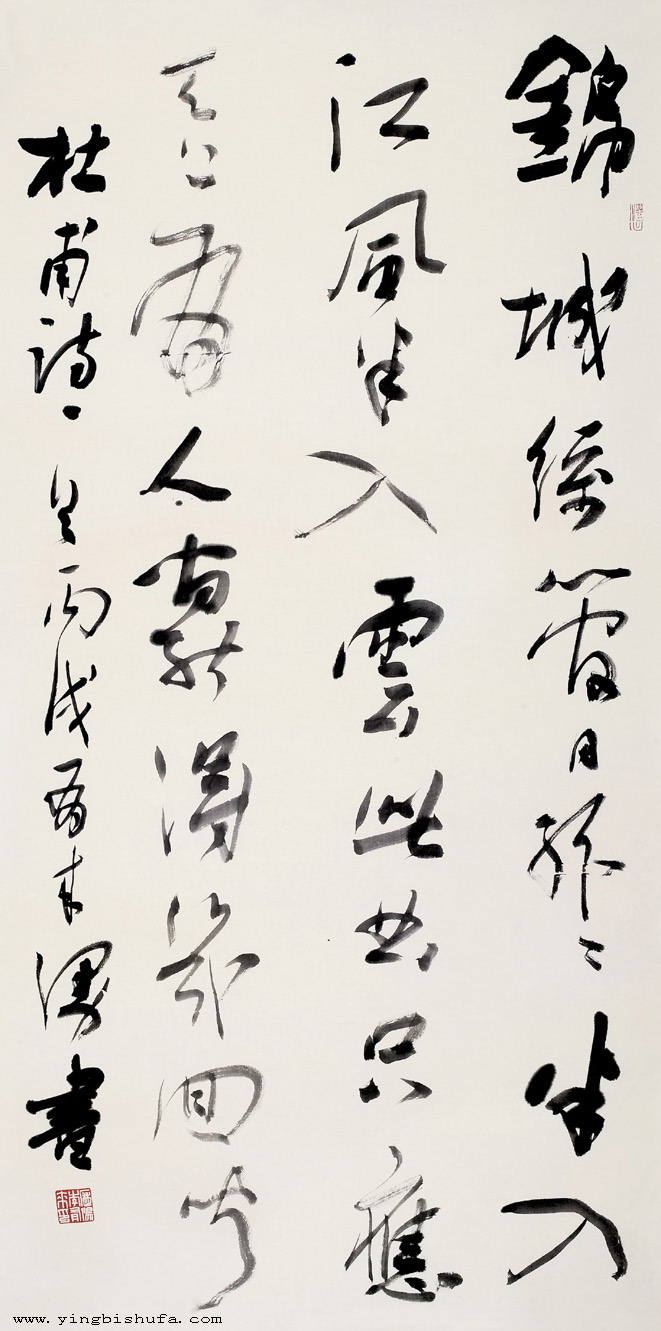 錦城絲管日紛〻半入
江風半入雲此曲只應
天上有人間能得幾回聞
杜甫詩一首丙戌有來書
www.yingbishufa.com